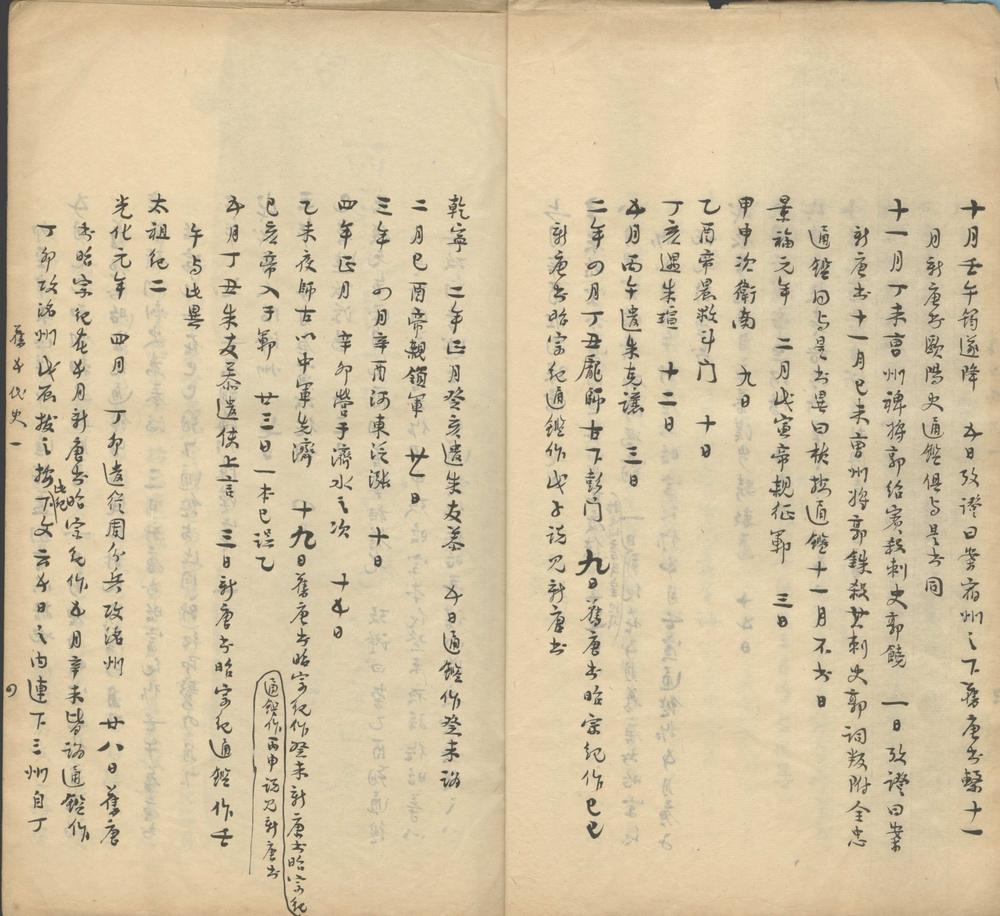 十月壬午筠遂降　五日攷證曰案宿州之下舊唐書繫十一
月新唐書歐陽史通鑑俱与是書同
十一月丁未曹州裨將郭紹賓殺刺史郭饒　一日攷證曰案
新唐書十一月己未曹州將郭銖殺其刺史郭詞叛附全忠
通鑑同与是書異曰楨按通鑑十一月不書日
景福元年　二月戊寅帝親征鄆　三日
甲申次衛南　九日
乙酉帝晨救斗门　十日
丁亥遇朱瑄　十二日
五月丙午遣朱克讓　三日
二年四月丁丑龐師古下彭门　九日舊唐書昭宗紀作己巳
新唐書昭宗紀通鑑作戊子說見新唐書
乾寧　二年正月癸亥遣朱友恭　五日通鑑作癸未誤
二月己酉帝親領軍　廿一日
三年四月辛酉河東泛漲　十日
四年正月　辛卯營于濟水之次　十五日
乙未夜師古以中軍先濟　十九日舊唐書昭宗紀作癸未新唐書昭宗紀
通鑑作丙申說見新唐書
己亥帝入于鄆　廿三日一本己誤乙
五月丁丑朱友恭遣使上言　三日新唐書昭宗紀通鑑作壬
午与此異
太祖紀二
光化元年　四月　丁卯遣從周分兵攻洺州　廿八日舊唐
書昭宗紀在五月新唐書昭宗紀作五月辛未皆誤通鑑作
丁卯攻洺州戊辰拔之按此紀下文云五日之内連下三州自丁
舊五代史一
四